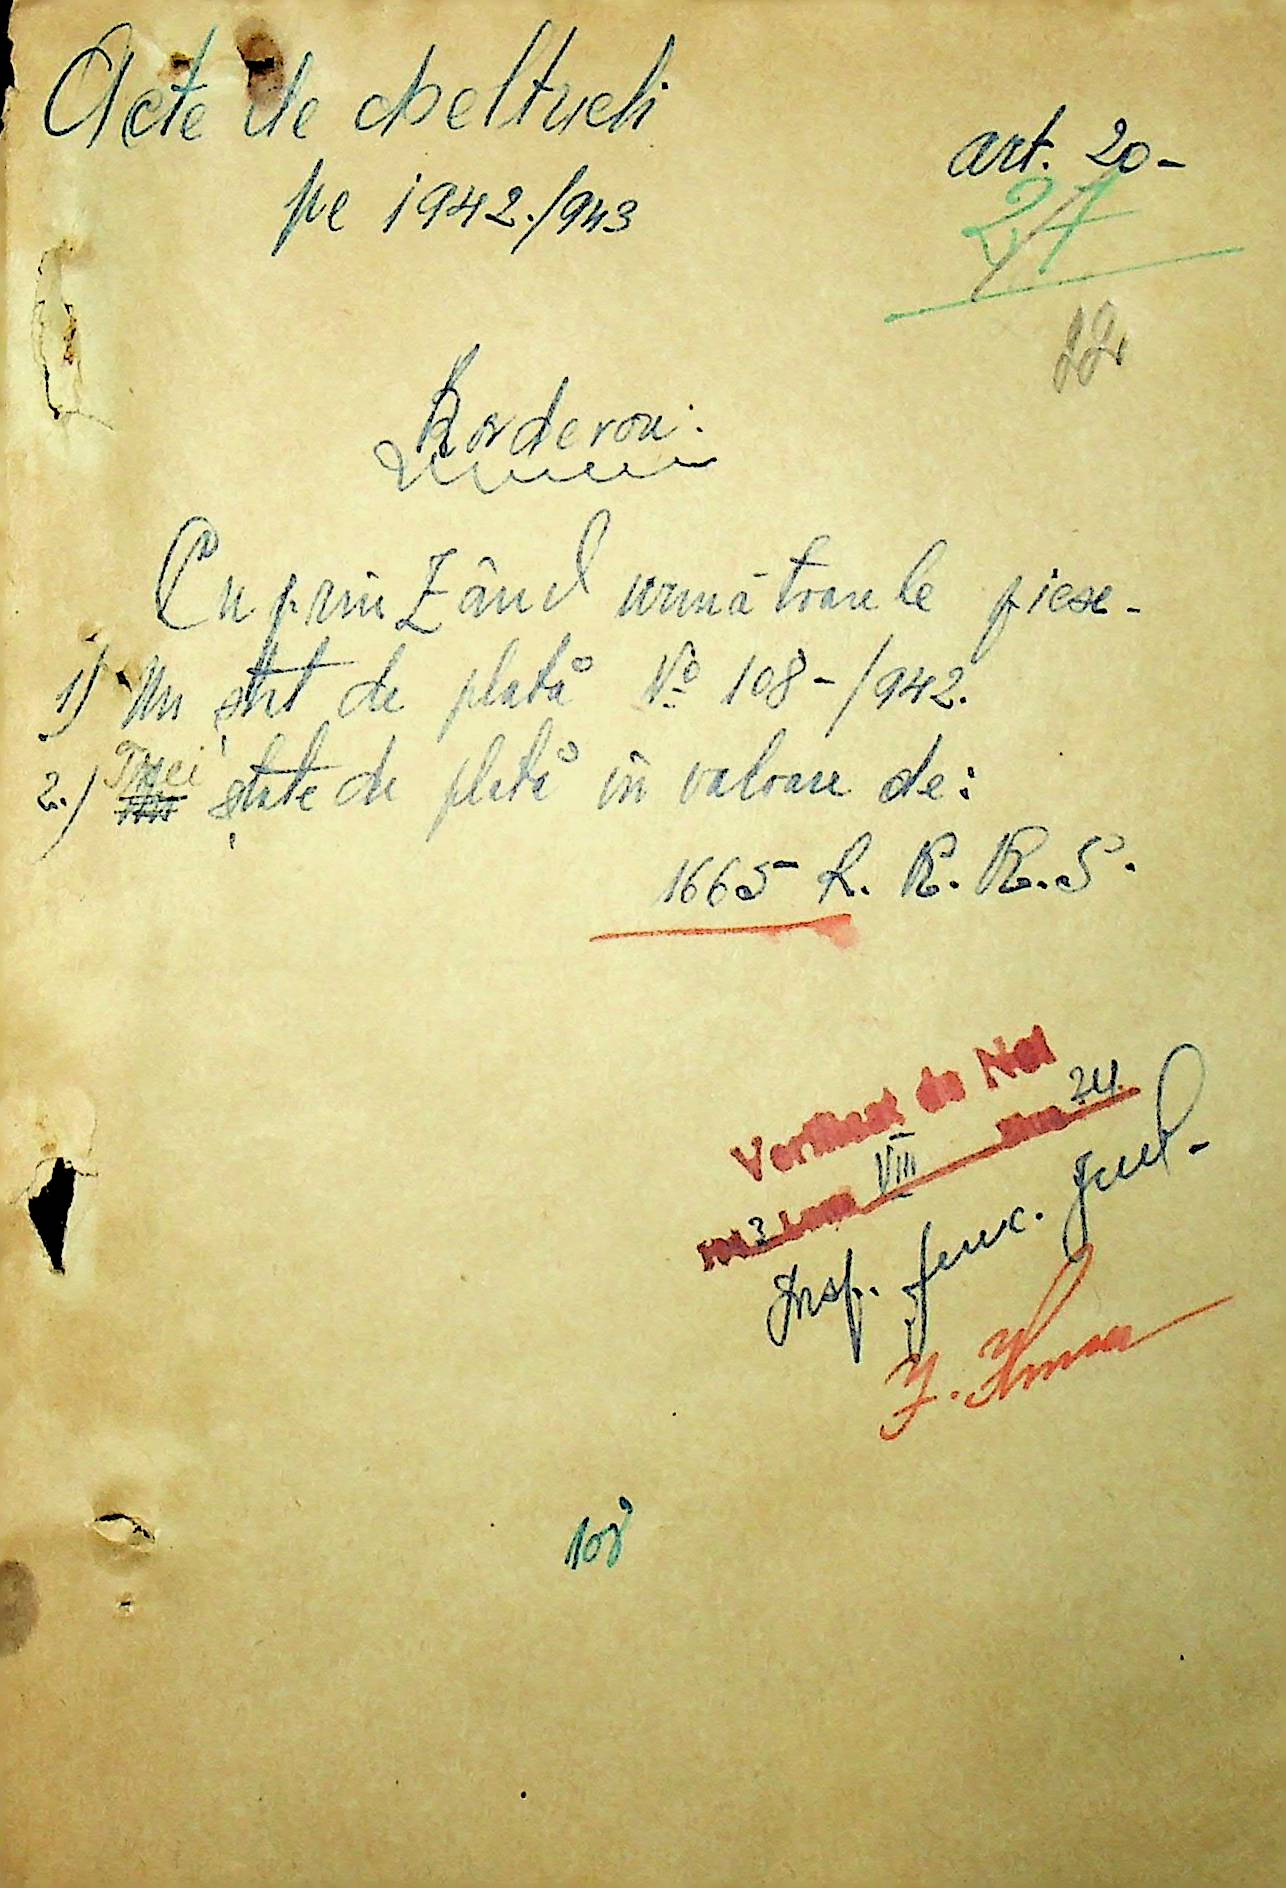 Acte de cheltueli
pe 1942./943
art. 20-
27
22
Borderou:
Cuprinzând următoarele piese-
1) Un stat de plată No 108-/942.
2.) Trei state de plată în valoare de:
1665 R. K. K. S.
Verificat de Noi
3 Luna VIII Ziua 24
Insp. func. jud.
108